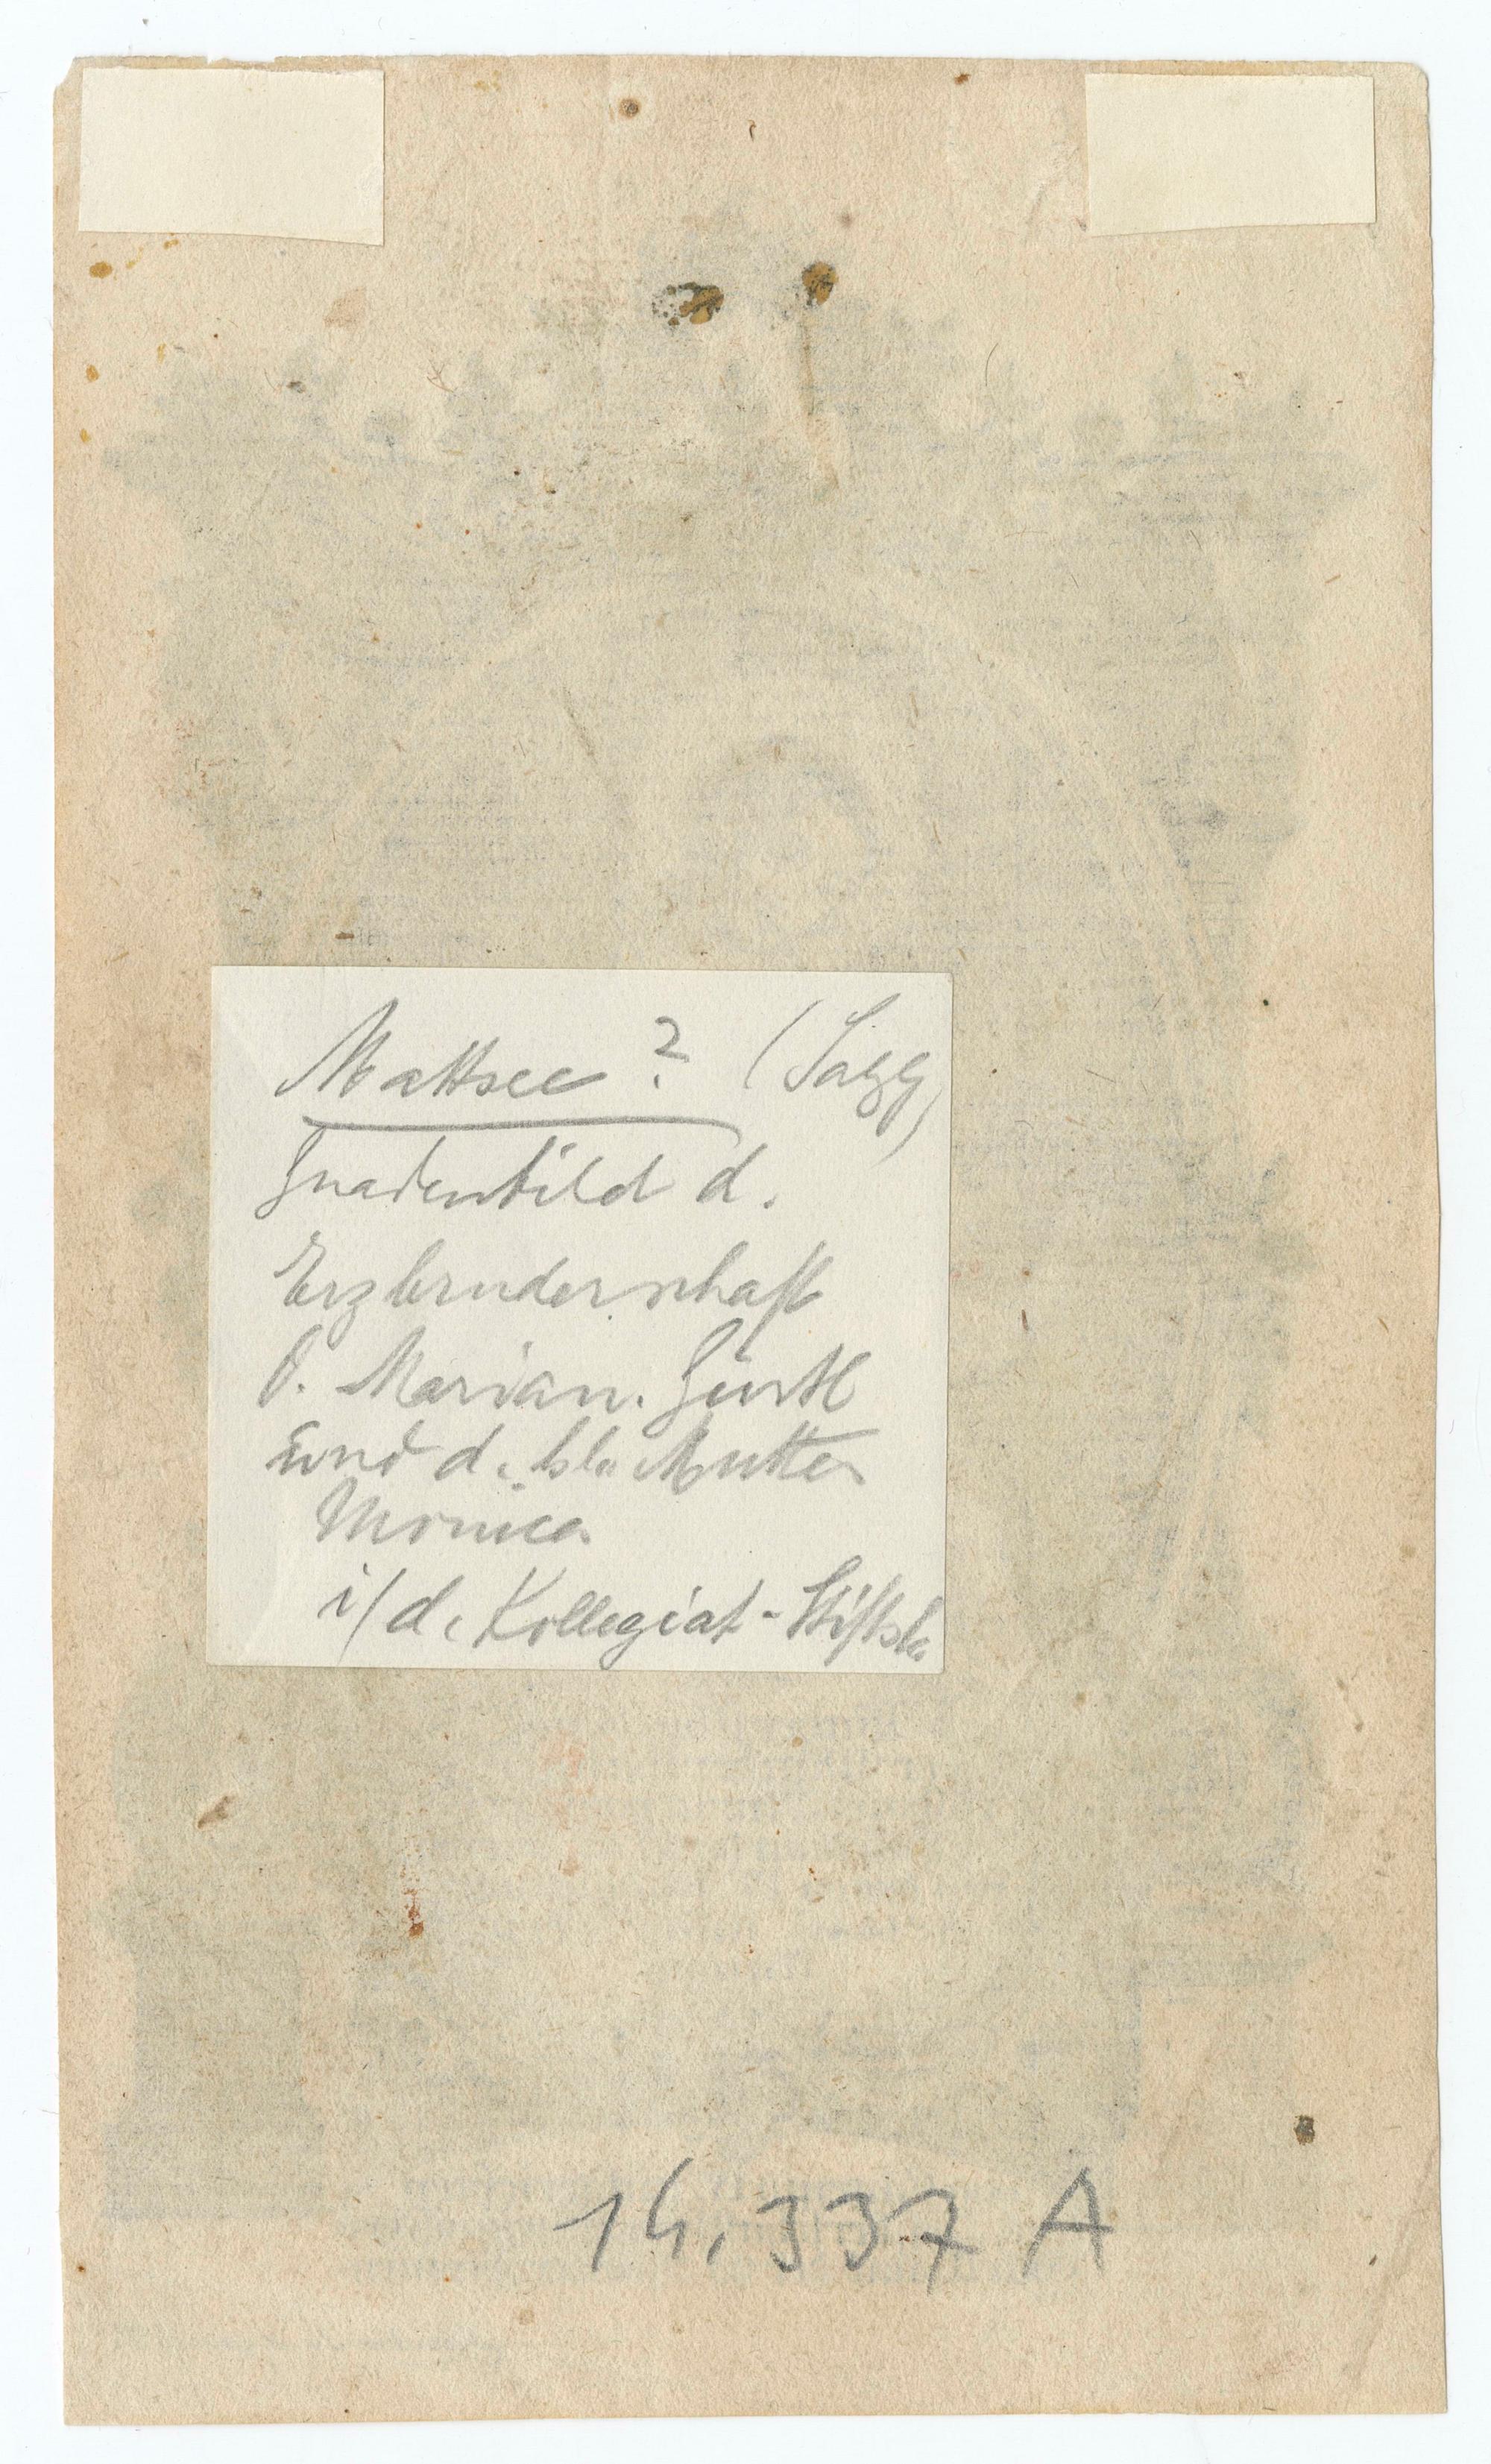 Mattsee ? (Sazg)
Gnadenbild d.
Erzbruderschaft
v. Marian. Gürtl
und d. hl. Mutter
Monica
i/d. Kollegiat-Stiftsk.
14.337 A